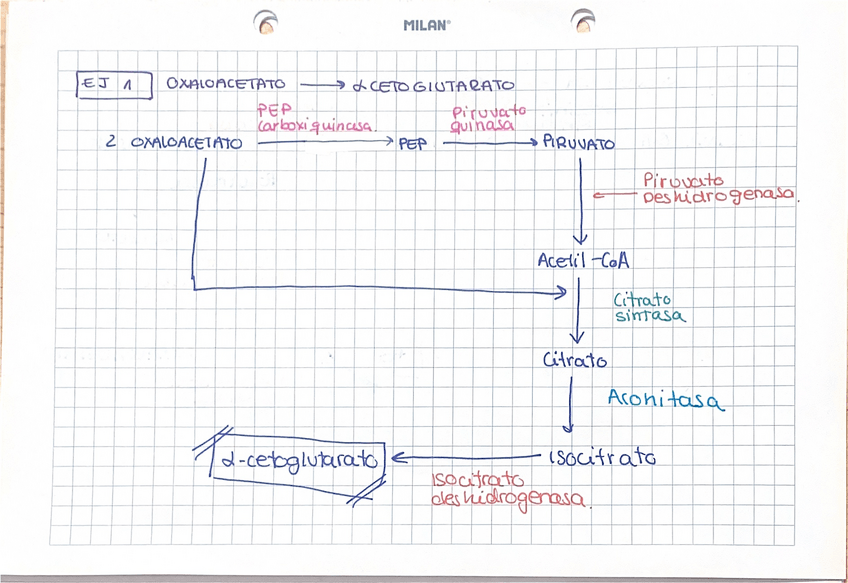 MILAN®
EJ 1 OXALOACETATO → αCETOGLUTARATO
PEP
carboxiquinasa.
Piruvato
quinasa
2 OXALOACETATO → PEP → PIRUVATO
Piruvato
Deshidrogenasa.
Acetil-CoA
Citrato
sintasa
Citrato
Aconitasa
α-cetoglutarato ← ISOCITRATO
Isocitrato
deshidrogenasa.